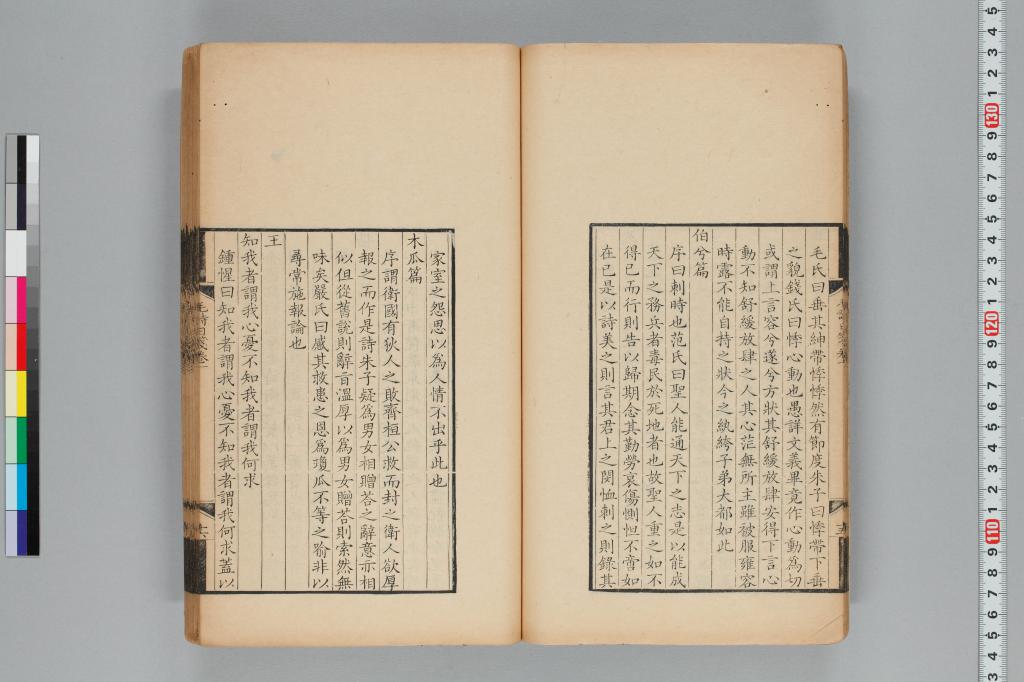 毛氏曰垂其紳帶悸悸然有節度朱子曰悸帶下垂
之貌錢氏曰悸心動也愚詳文義畢竟作心動為切
或謂上言容兮遂兮方狀其舒緩放肆安得下言心
動不知舒緩放肆之人其心茫無所主雖被服雍容
時露不能自持之狀今之紈絝子弟大都如此
伯兮篇
序曰刺時也范氏曰聖人能通天下之志是以能成
天下之務兵者毒民於死地者也故聖人重之如不
得已而行則告以歸期念其勤勞哀傷惻怛不啻如
在已是以詩美之則言其君上之閔恤刺之則錄其
家室之怨思以為人情不出乎此也
木瓜篇
序謂衛國有狄人之敗齊桓公救而封之衛人欲厚
報之而作是詩朱子疑為男女相贈荅之辭意亦相
似但從舊說則辭旨溫厚以為男女贈荅則索然無
味矣嚴氏曰感其救患之恩為瓊瓜不等之喻非以
尋常施報論也
王
知我者謂我心憂不知我者謂我何求
鍾惺曰知我者謂我心憂不知我者謂我何求蓋以
十六
5
4
3
2
1
130
9
8
7
6
5
4
3
2
1
120
9
8
7
6
5
4
3
2
1
110
9
8
7
6
5
4
3